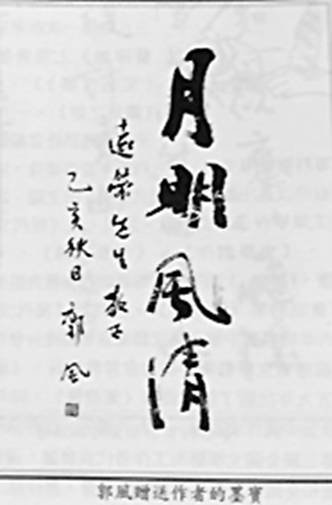 月明风清
遠榮先生 教正
乙亥秋日 郭风
郭風贈送作者的墨寶